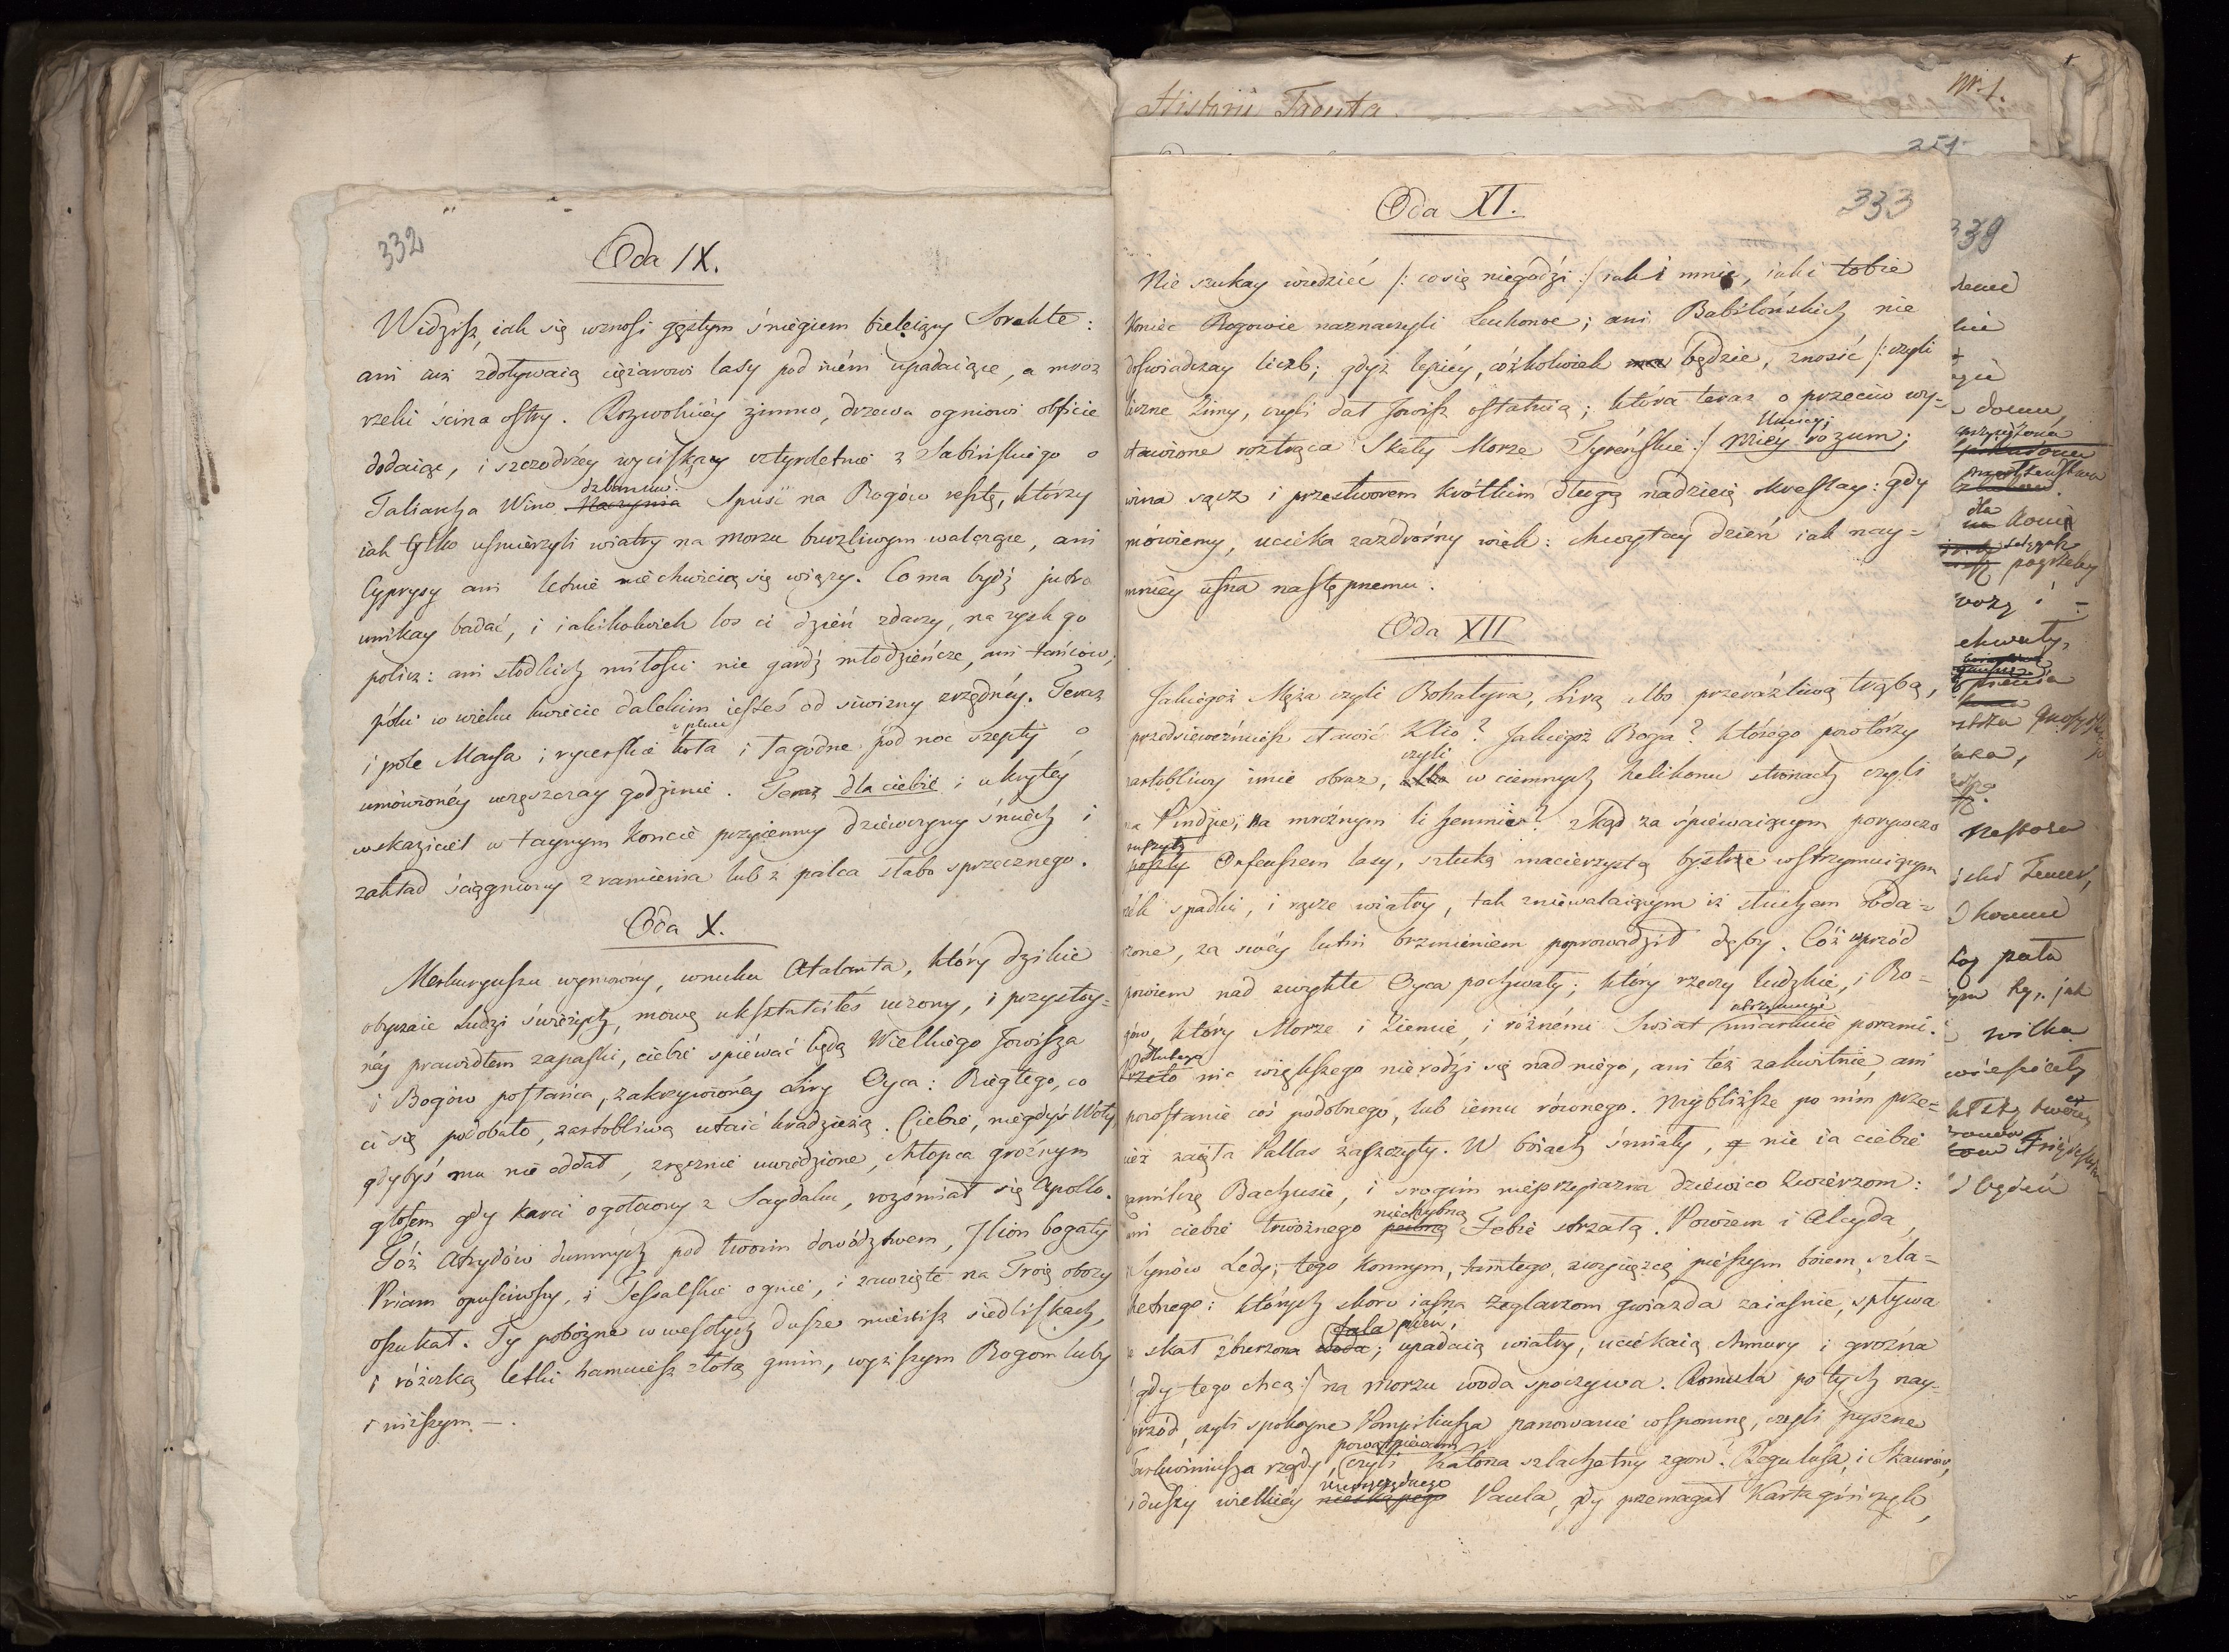 332
Oda IX.
Widzisz, iak się wznosi gęstym śniegiem bieleiący Sorakte:
ani iuż zdoływaią ciężarowi lasy pod niém upadaiące, a mroz
rzeki ścina ostry. Rozwolniéy zimno, drzewa ogniowi obficie
dodaiąc, i szczodrzéy wyciskay czteroletnie z Sabińskiego o
dzbanu
Taliarcha Wino Naczynia Spuść na Bogów resztę, którzy
iak tylko uśmierzyli wiatry na morzu burzliwym walczące, ani
Cyprysy ani letnie nie chwieią się wiązy. Co ma bydź jutro
unikay badać, i iakikolwiek los ci dzień zdarzy, na zysk go
policz: ani słodkich miłości nie gardź młodzieńcze, ani tańców,
póki w wieku kwiecie dalekim iesteś od siwizny zrzędnéy. Teraz
i place
i pole Marsa i rycerskie koła i łagodne pod noc szepty o
umówionéy uczęszczay godzinie. Teraz dla ciebie i ukrytéy
wskaziciel w taynym koncie przyiemny dziewczyny śmiech i
zakład ściągniony z ramienia lub z palca słabo sprzecznego.
Oda X.
Merkuryuszu wymowny, wnuku Atalanta, który dzikie
obyczaie ludzi świeżych, mową ukształciłeś uczony, i przystoy-
néj prawidłem zapaski, ciebie śpiéwać będę Wielkiego Jowisza
i Bogów posłańca, zakrzywionéy Liry Oyca: Biegłego, co
ci się podobało, żartobliwą utaić kradzieżą. Ciebie, niegdyś Woły,
gdybyś mu nie oddał, zręcznie uwiedzione, chłopca groźnym
głosem gdy karci ogołocony z Saydaku, rozśmiał się Apollo.
Toż Atrydów dumnych pod twoim dowództwem, Ilion bogaty
Priam opuściwszy, i Tessalskie ognie, i zawzięte na Troię obozy
oszukał. Ty pobożne w wesołych dusze mieścisz siedliskach,
i różczką letki hamuiesz złotą gmin, wyższym Bogom luby
i niższym —.
Historii Tacyta
Nr. 1.
251
333
Oda XI.
Nie szukay wiedzieć /: co się niegodzi :/ iaki mnie, iaki tobie
koniec Bogowie naznaczyli Leukonoe; ani Babilońskich nie
doświadczay liczb; gdyż lepiéy, cóżkolwiek będzie, znosić /: czyli
liczne Zimy, czyli dał Jowisz ostatnią; która teraz o przeciw wy-
Umiéy;
stawione roztrąca Skały Morze Tyreńskie :/ Miéy rozum;
wina sącz i przestworem krótkim długą nadzieię okreslay: gdy
mówiemy, ucieka zazdrośny wiek: chwytay dzień iak nay-
mniéy ufna następnemu.
Oda XII
Jakiegoż Męża czyli Bohatyra, Lirą albo przeraźliwą trąbą,
przedsięweźmiesz sławić Klio? Jakiegoż Boga? którego powtórzy
czyli
żartobliwy imie obraz, albo w ciemnych Helikonu stronach czyli
na Pindzie, na mroźnym li Hemmie? zkąd za śpiewaiącym porywczo
ruszyły
poszły Orfeuszem lasy, sztuką macierzystą bystre wstrzymuiącym
rzék spadki, i rącze wiatry, tak zniewalaiącym iż słuchem obda-
rzone, za swéy lutni brzmieniem poprowadził dęby. Cóż wprzód
powiem nad zwykłe Oyca pochwały; który rzeczy ludzkie, i Bo-
utrzymuie
gów, który Morze i Ziemie, i różnémi Swiat miarkuie porami.
Dlatego
Przeto nic większego nie rodzi się nad niego, ani też zakwitnie, ani
powstanie coś podobnego, lub iemu równego. Naybliższe po nim prze-
cież zaięta Pallas zaszczyty. W boiach śmiały, nie ia ciebie
zamilczę Bachusie, i srogim nieprzyiazna dziewico Zwierzom:
niechybną
ani ciebie trwożnego pewną Febie strzałą. Powiem i Alcyda,
i Synów Ledy; tego konnym, tamtego, zwyciężcę pieszym boiem, szla-
hetnego: których skoro iasna żeglarzom gwiazda zaiaśnie, spływa
fala
ze skał zburzona woda; upadaią wiatry, uciekaią chmury i groźna
/: gdy tego chcą :/ na morzu woda spoczywa. Romula po tych nay-
przód, czyli spokoyne Pompiliusza panowanie wspomnę, czyli pyszne
powątpiewam
Tarkwiniusza rządy, czyli Katona szlachetny zgon. Regulusa, i Skaurów,
i duszy wielkiéy nieskąpego Paula, gdy przemagał Kartagińczyk,
339
domu,
zwyciężona
dla
na koni
pogrzeby
chwały,
Nestora
Teucer,
pała
jak
wilka